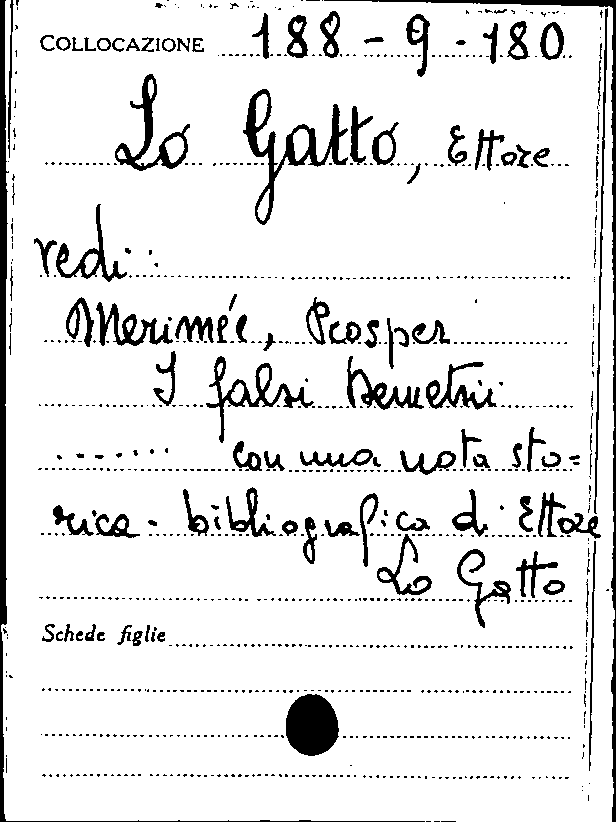 COLLOCAZIONE 188-9-180
Lo Gatto, Ettore
vedi:
Merimée, Prosper
I falsi Demetrii
....... con una nota sto=
rica-bibliografica di Ettore
Lo Gatto
Schede figlie